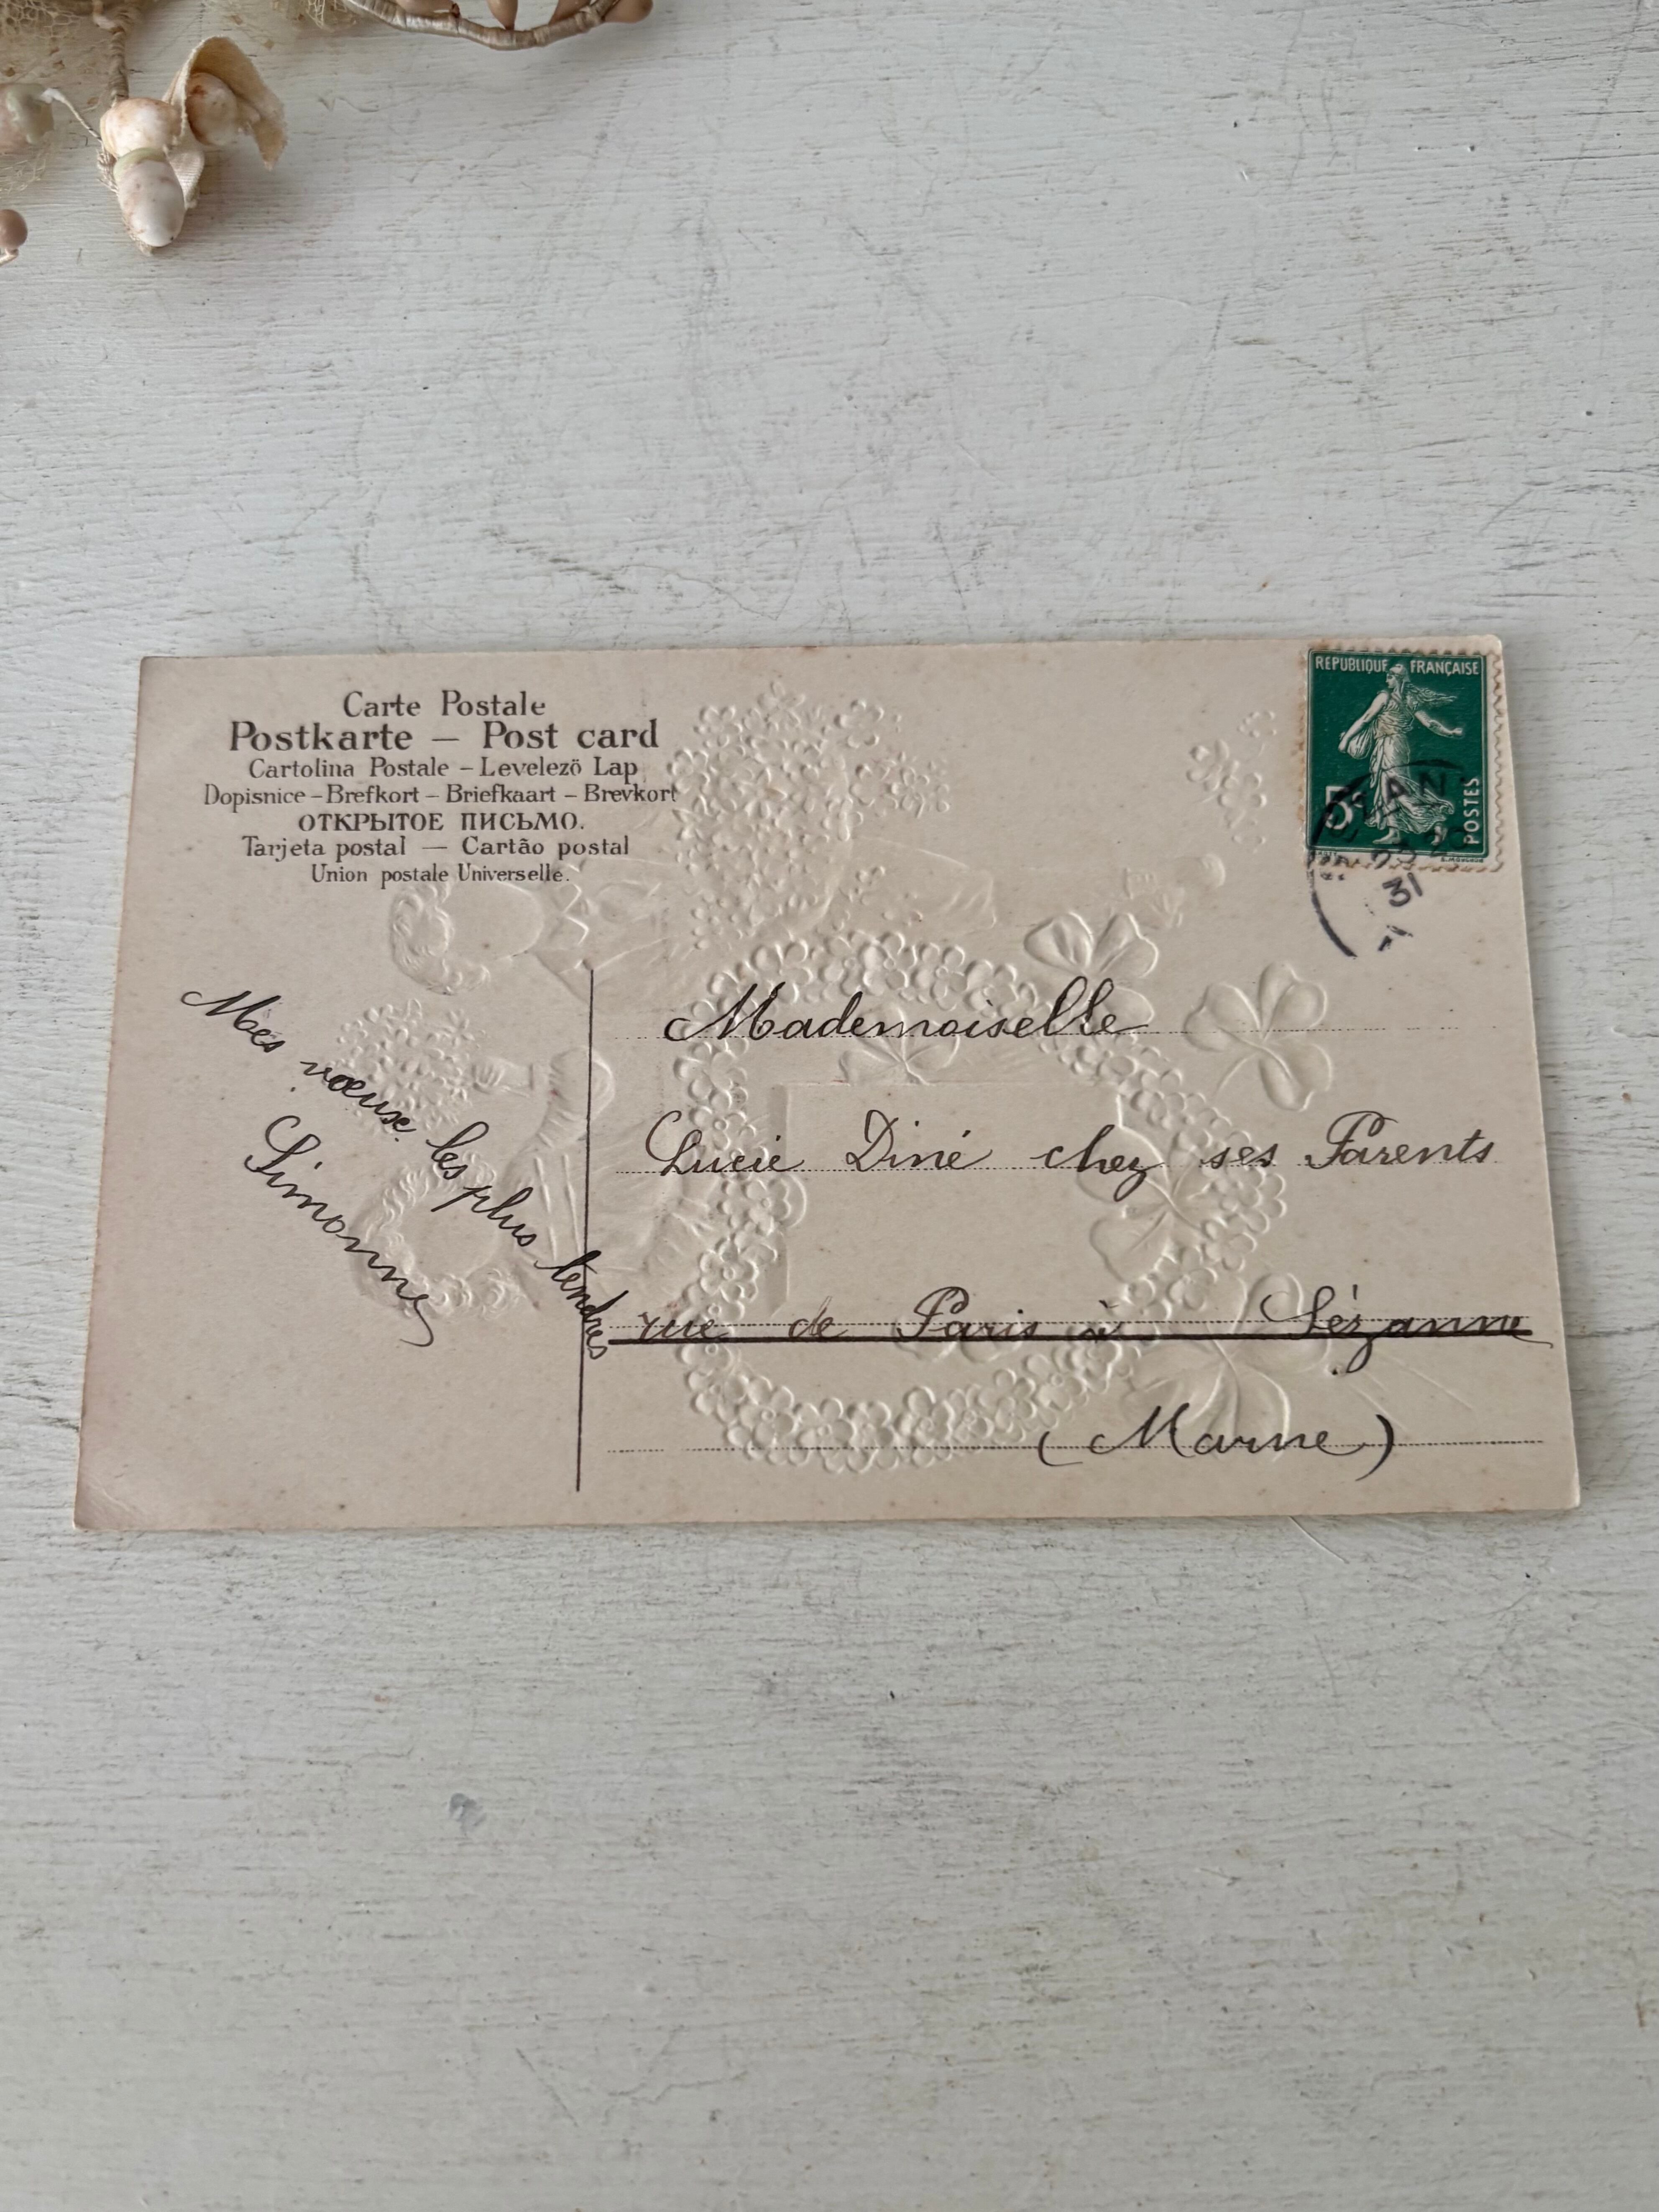 Carte Postale
Postkarte — Post card
Cartolina Postale – Levelezö Lap
Dopisnice – Brefkort – Briefkaart – Brevkort
ОТКРЫТОЕ ПИСЬМО.
Tarjeta postal — Cartão postal
Union postale Universelle.
REPUBLIQUE FRANÇAISE
5c
POSTES
31
Mes vœux les plus tendres
Simonne
Mademoiselle
Lucie Diné chez ses Parents
rue de Paris à Sézanne
(Marne)